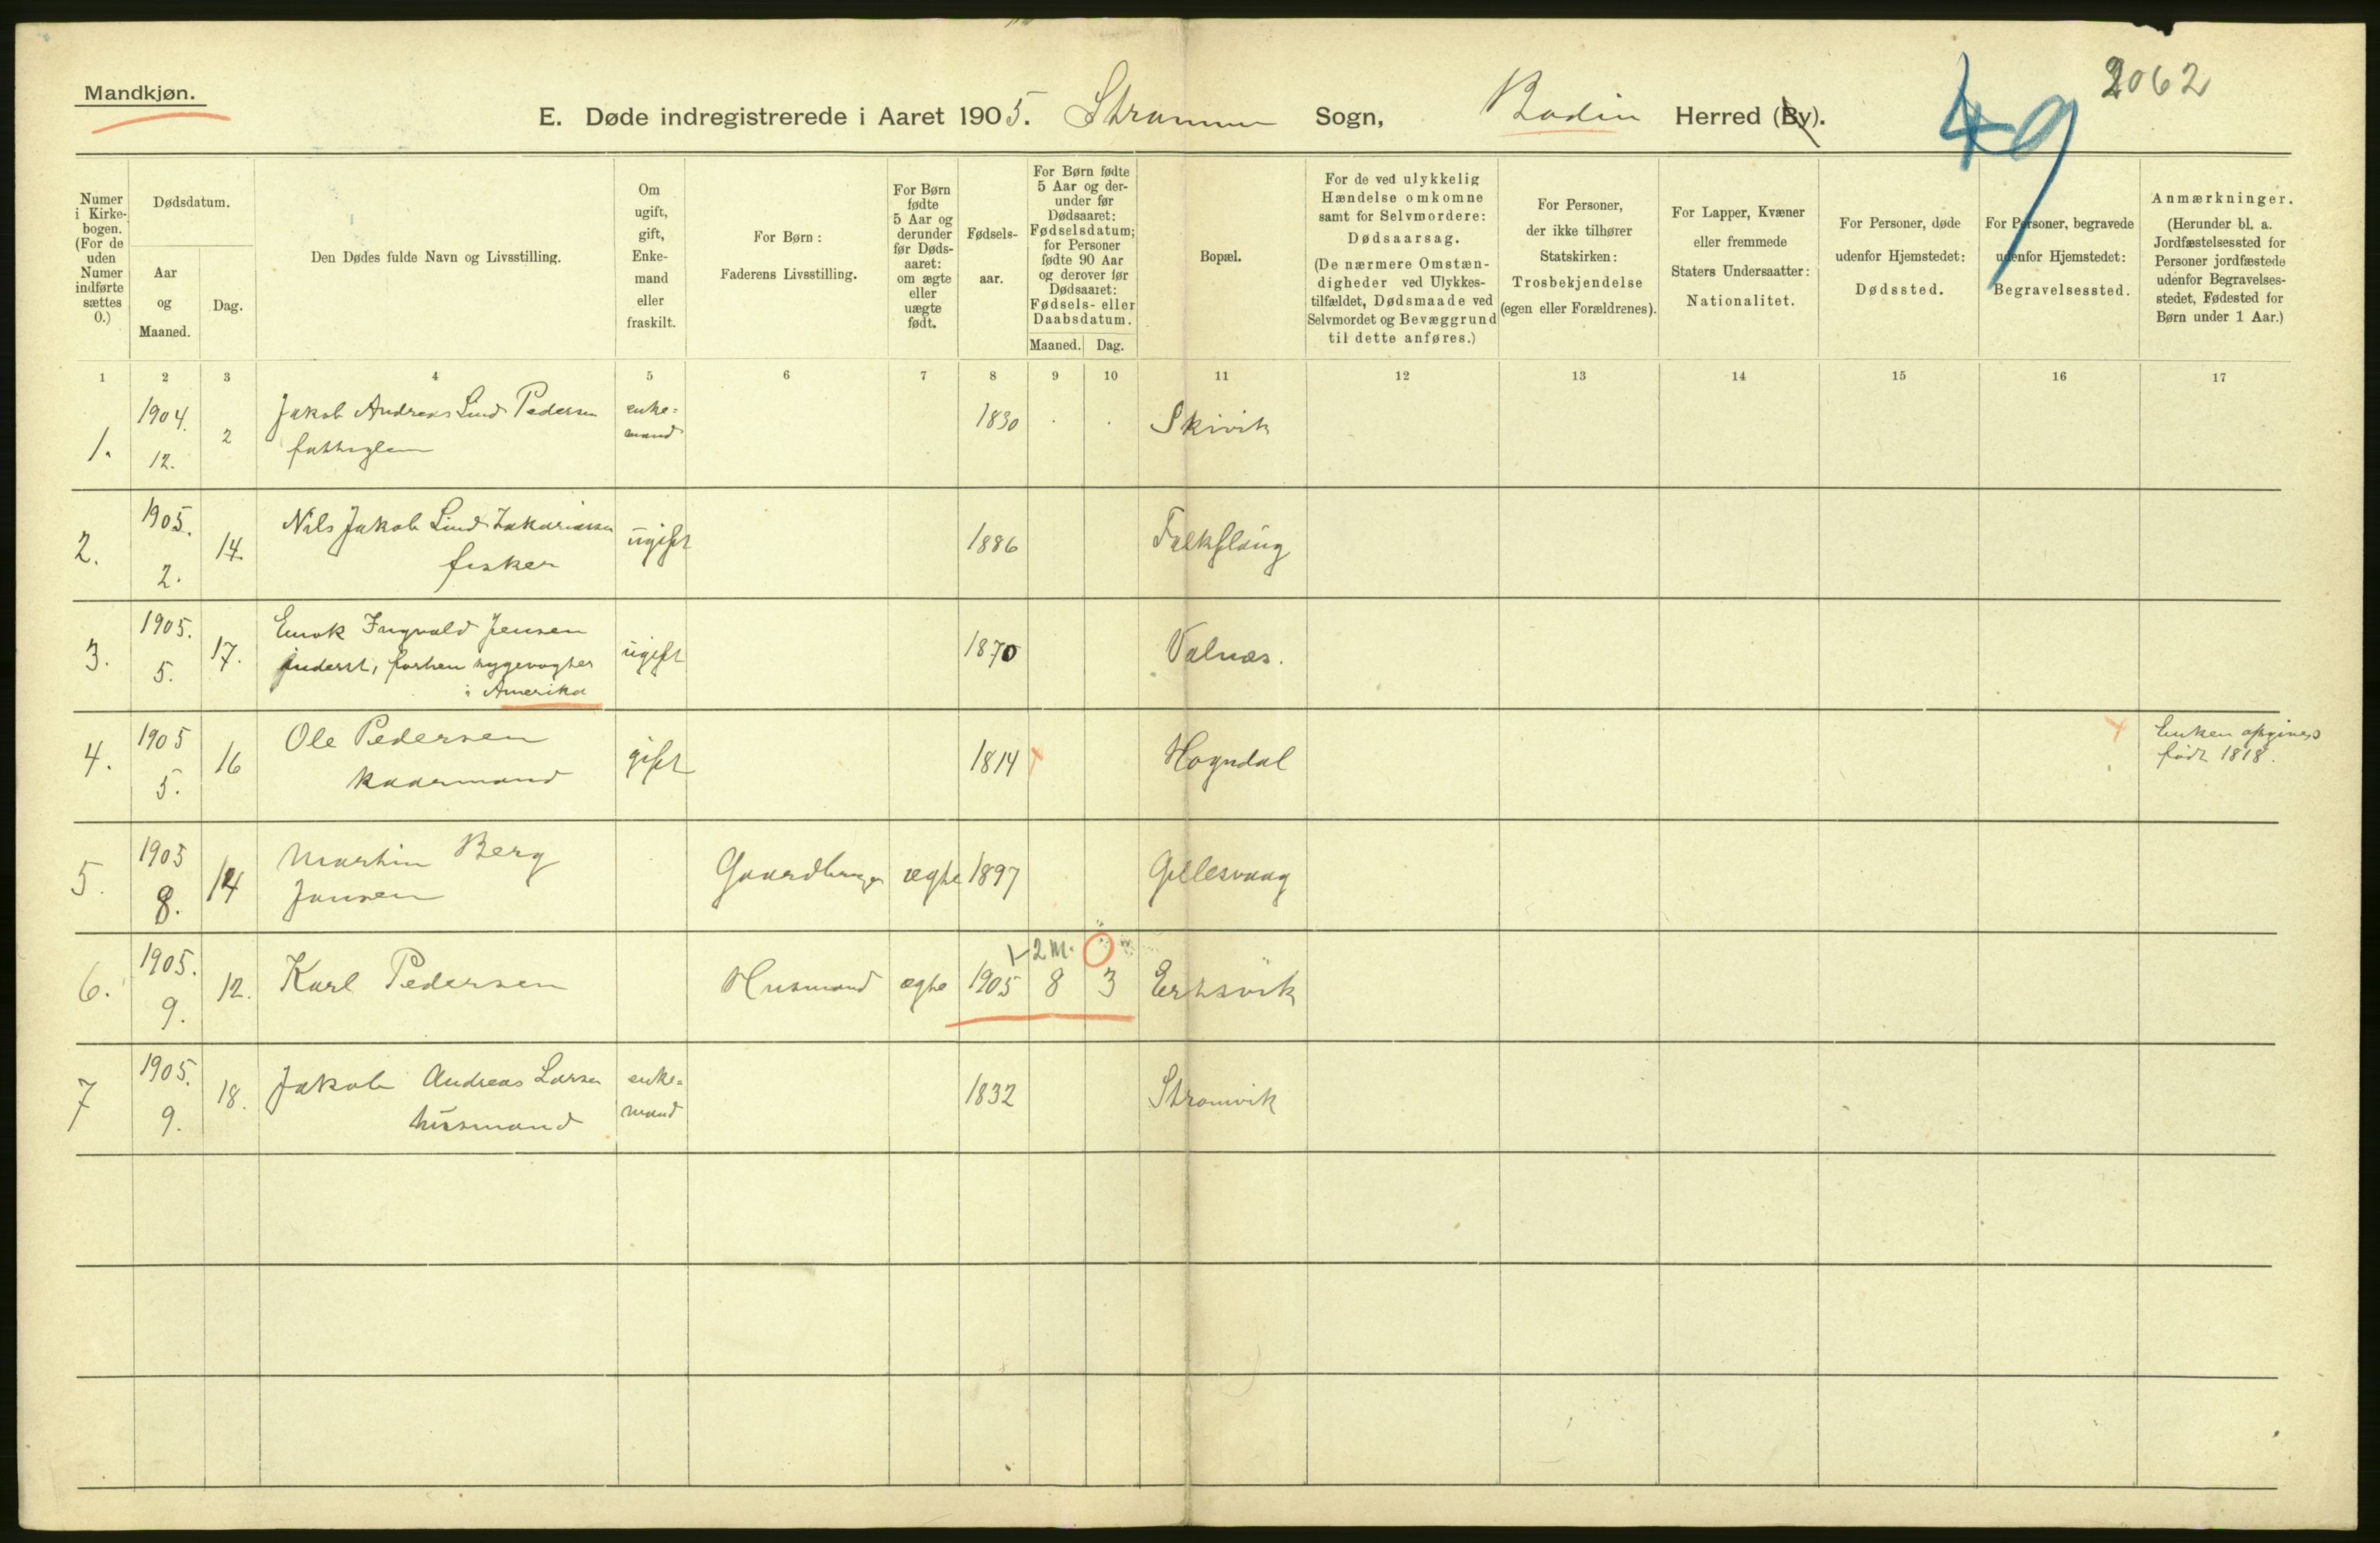 Mandkjøn.
2062
49
E. Døde indregistrerede i Aaret 1905. Strømmen Sogn, Bodin Herred (By).
Numer i Kirkebogen. (For de uden Numer indførte sættes 0.)
Dødsdatum.
Aar og Maaned.
Dag.
Den Dødes fulde Navn og Livsstilling.
Om ugift, gift, Enkemand eller fraskilt.
For Børn: Faderens Livsstilling.
For Børn fødte 5 Aar og derunder før Dødsaaret: om ægte eller uægte født.
Fødselsaar.
For Børn fødte 5 Aar og derunder før Dødsaaret: Fødselsdatum; for Personer fødte 90 Aar og derover før Dødsaaret: Fødsels- eller Daabsdatum.
Maaned. Dag.
Bopæl.
For de ved ulykkelig Hændelse omkomne samt for Selvmordere: Dødsaarsag. (De nærmere Omstændigheder ved Ulykkestilfældet, Dødsmaade ved Selvmordet og Bevæggrund til dette anføres.)
For Personer, der ikke tilhører Statskirken: Trosbekjendelse (egen eller Forældrenes).
For Lapper, Kvæner eller fremmede Staters Undersaatter: Nationalitet.
For Personer, døde udenfor Hjemstedet: Dødssted.
For Personer, begravede udenfor Hjemstedet: Begravelsessted.
Anmærkninger. (Herunder bl. a. Jordfæstelsessted for Personer jordfæstede udenfor Begravelsesstedet, Fødested for Børn under 1 Aar.)
1 2 3 4 5 6 7 8 9 10 11 12 13 14 15 16 17
1. 1904. 12. 2 Jakob Andreas Lind Pedersen enke= mand 1830 Skivik
fattiglem
2. 1905. 2. 14. Nils Jakob Lind Zakariassen ugift 1886 Falkflaug
fisker
3. 1905. 5. 17. Enok Ingvald Jensen ugift 1870 Valnæs.
inderst, forhen sygevogter
i Amerika
4. 1905 5. 16 Ole Pedersen gift 1814 Hogndal Enken opgives
kaarmand født 1818.
5. 1905 8. 14 Martin Berg Gaardbruger ægte 1897 Gillesvaag
Jansen
2 M.
6. 1905. 9. 12. Karl Pedersen Husmand ægte 1905 8 3 Ertsvik
7 1905. 9. 18. Jakob Andreas Larsen enke= mand 1832 Strømvik
husmand